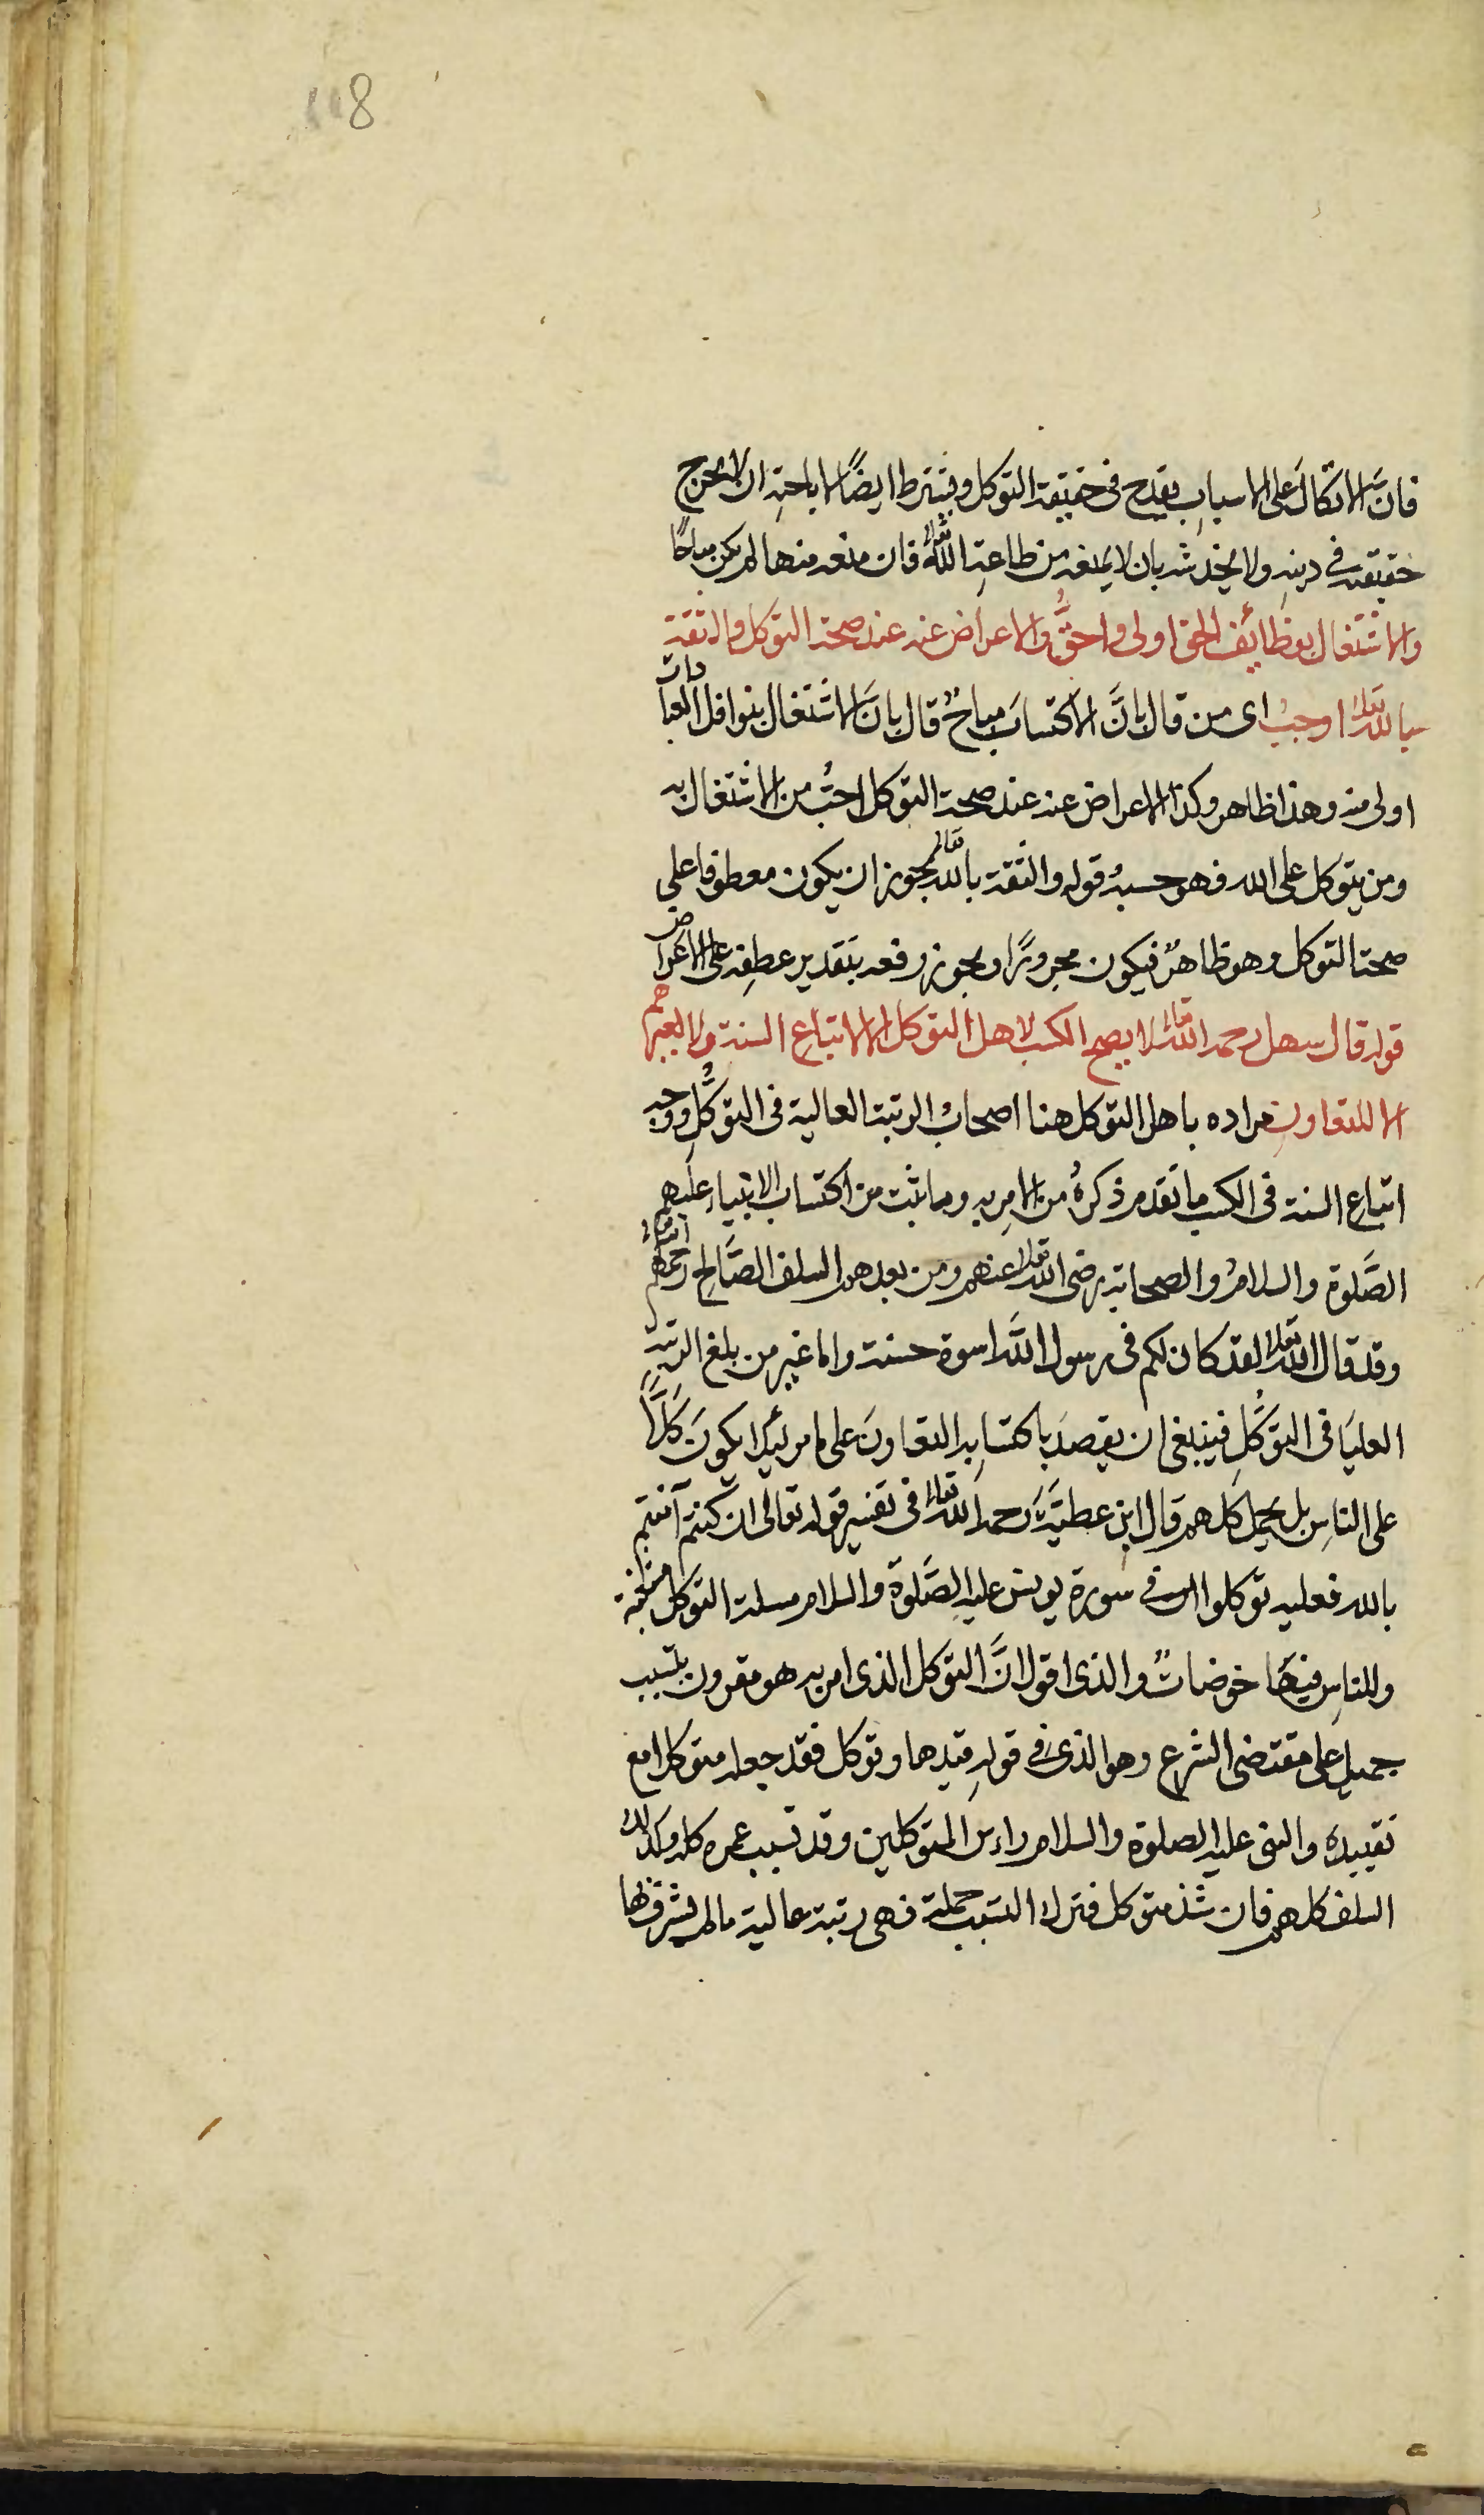 118
فانَّ الاتكالَ على الاسبابِ يقدح فى حقيقة التوكل ويشترط ايضًا لاباحتِه ان لا يجرح
حقيقته فى دينِه ولا يخدشه بان لا يمنعه من طاعةِ الله تعالى فان منعه منها لم يكن مباحًا
والاشتغال بوظائف الحق اولى واحقُّ والاعراض عنه عند صحة التوكل والثقة
بالله تعالى اوجبُ اى من قال بانَّ الاكتسابَ مباحٌ قال بانَّ الاشتغال بنوافل العبادات
اولى منه وهذا ظاهر وكذا الاعراض عنه عند صحة التوكل احبُّ من الاشتغال به
ومن يتوكل على الله فهو حسبهُ قوله والثقة بالله تعالى يجوز ان يكون معطوفا على
صحة التوكل وهو ظاهرٌ فيكون مجرورًا ويجوز رفعه بتقدير عطفِه على الاعراض
قوله قال سهل رحمه الله تعالى لا يصح الكسب لاهل التوكل الا لاتباع السنة ولا لغيرهم
الا للتعاونِ مراده باهل التوكل هنا اصحابُ الرتبة العالية فى التوكُّلِ ووجه
اتباع السنة فى الكسب ما تقدم ذكرهُ من الامرِ به وما ثبت من اكتساب الانبياء عليهم
الصَّلوة والسلامُ والصحابة رضى الله تعالى عنهم ومن بعدهم السلف الصَّالح رحمهم الله تعالى
وقد قال الله تعالى لقد كان لكم فى رسول الله اسوة حسنة واما غير من بلغ الرتبة
العليَا فى التوكُّلِ فينبغى ان يقصدَ باكتسابِه التعاونَ على ما مر لئلا يكونَ كَلًّا
على الناسِ بل يحمل كَلَّهم قال ابن عطيَّةَ رحمه الله تعالى فى تفسير قوله تعالى ان كنتم آمنتم
بالله فعليه توكلوا الى فى سورة يونس عليه الصَّلوة والسلام مسئلة التوكل متشعبة
وللناسِ فيها خوضاتٌ والذى اقول انَّ التوكل الذى امر به هو مقرون بتسبب
جميلٍ على مقتضى الشرع وهو الذى فى قولهِ قيدها وتوكل فقد جعله متوكلا مع
تقييدهِ والنبى عليه الصلوة والسلام رأس المتوكلين وقد تسبب عمره كله وكذلك
السلف كلهم فان شذ متوكل فترك التسبب جملة فهى رتبة عالية ما لم يشرف بها